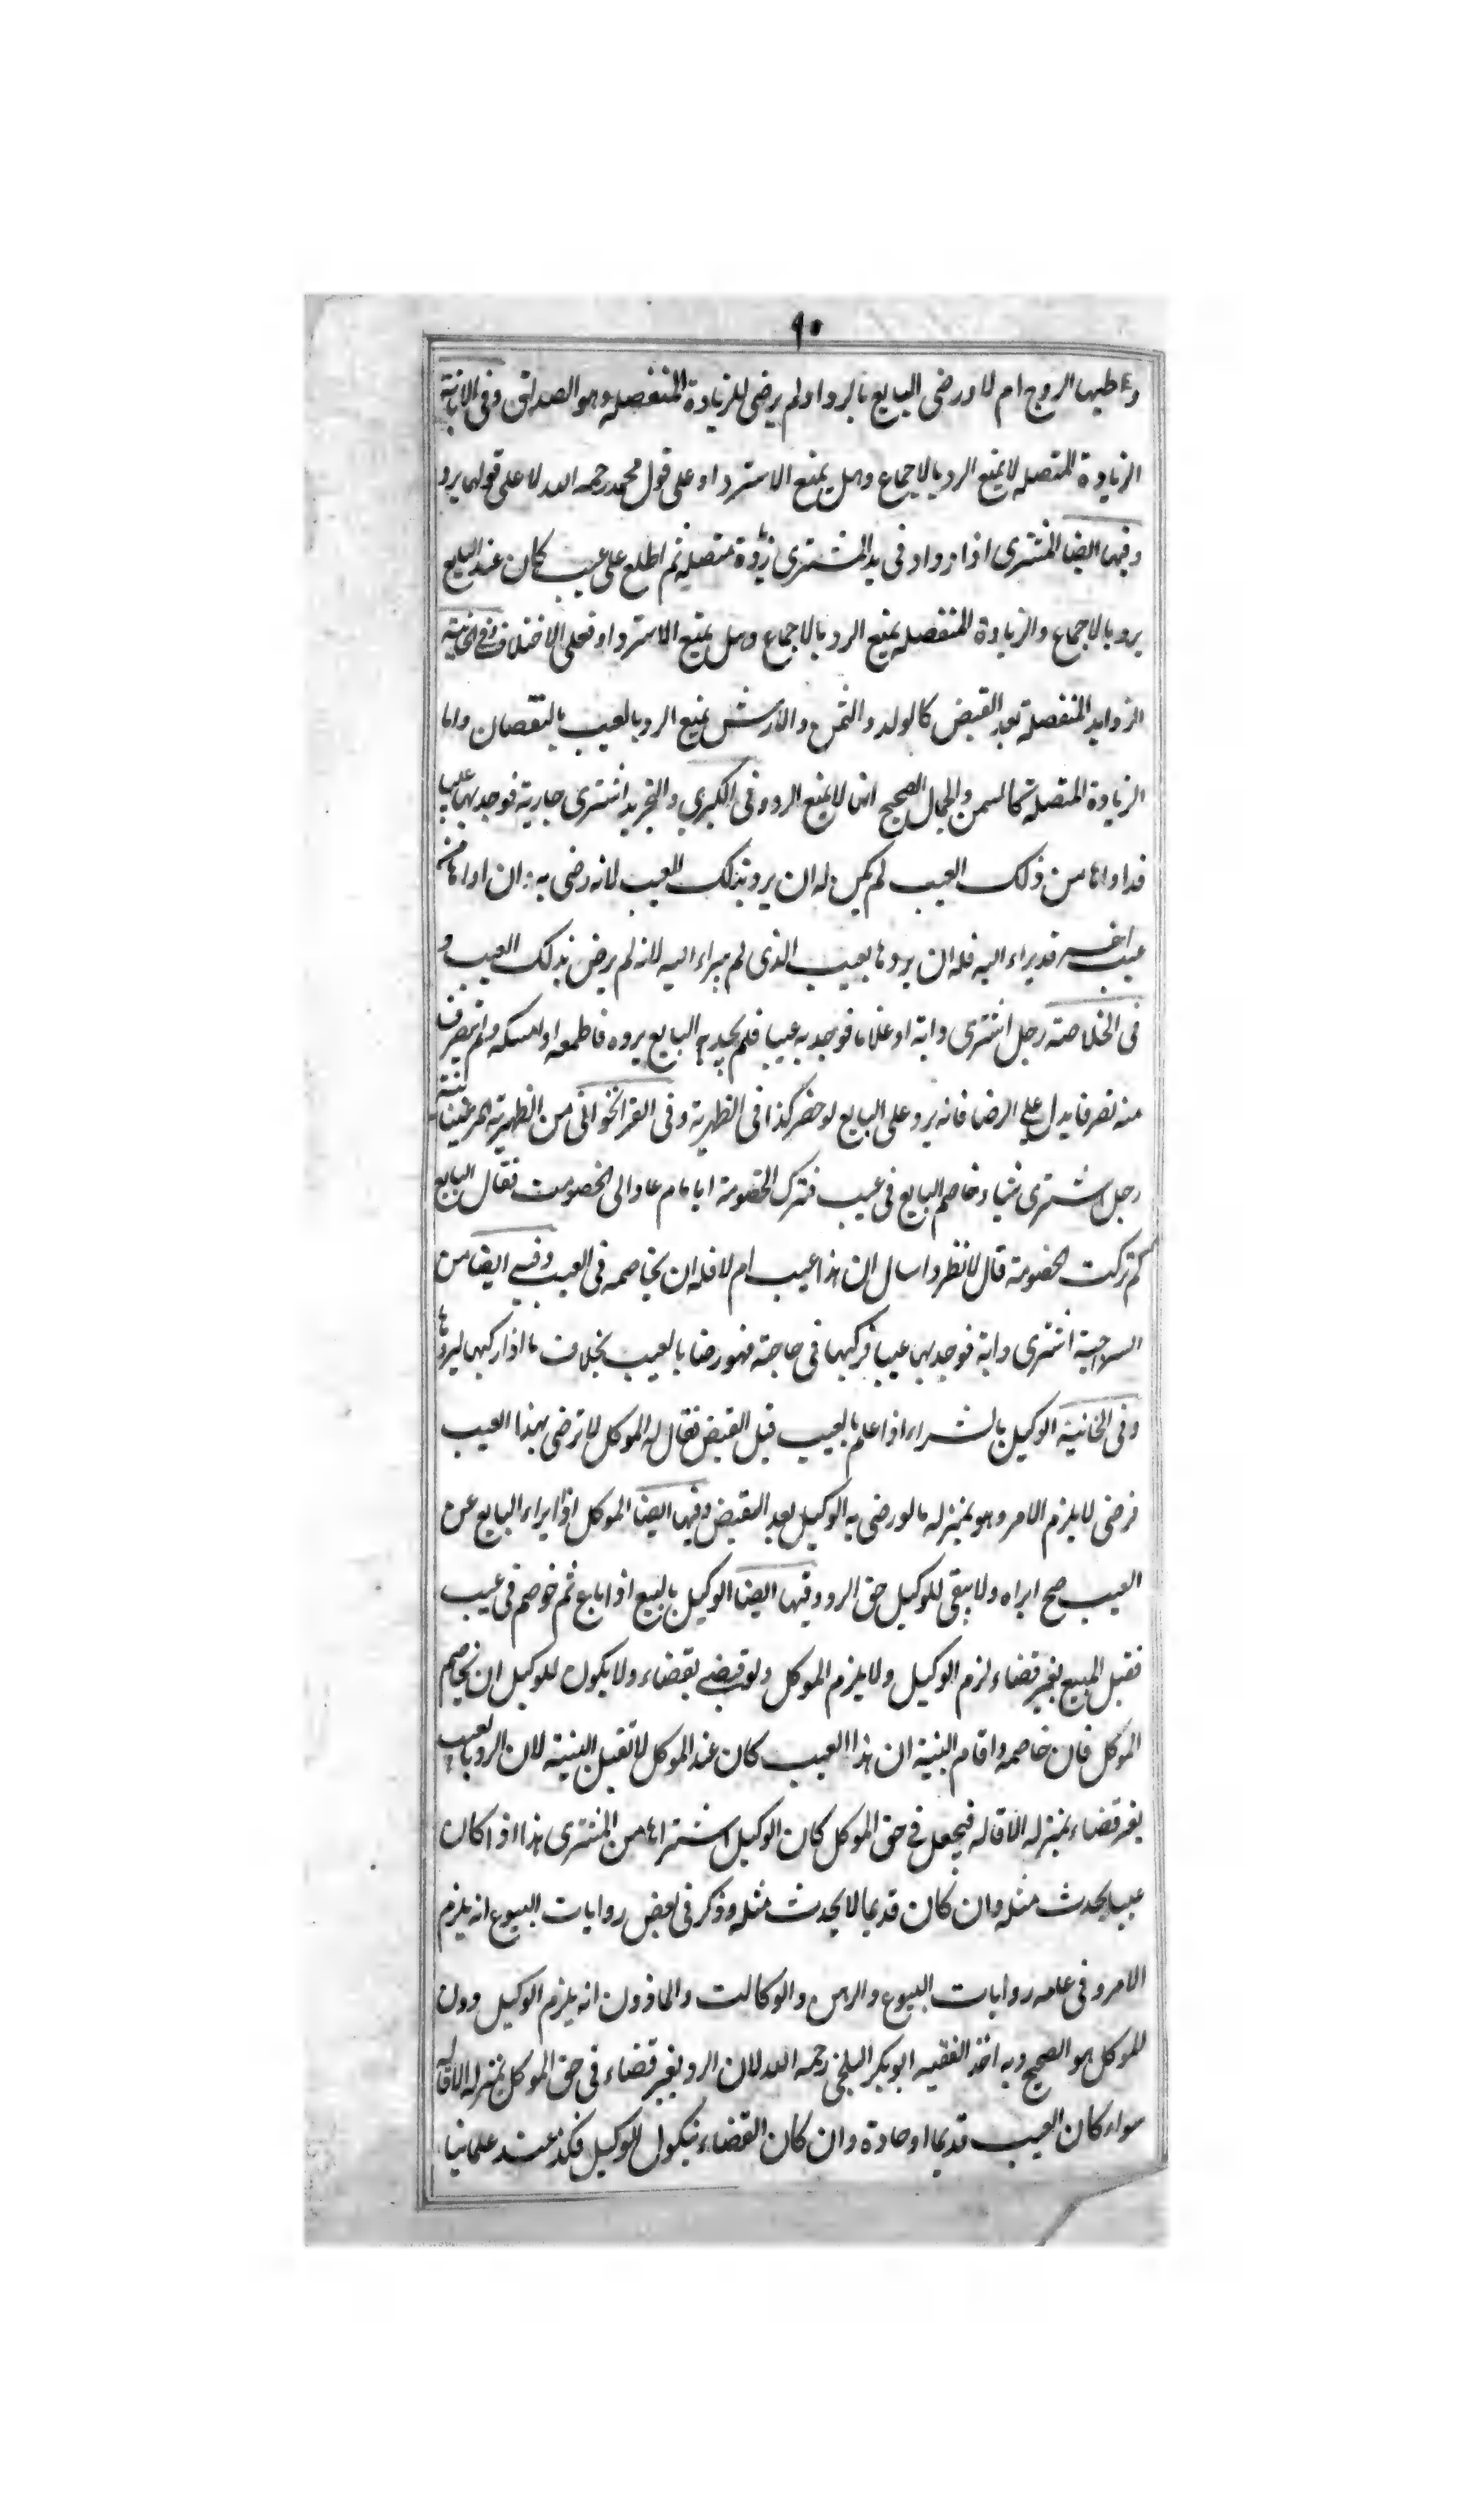 ٩٠
وطيها الزوج ام لا ورضى البايع بالرد اولم يرضى للزيادة المنفصله وهو الصداق وفى الابانة
الزيادة المتصله لا يمنع الرد بالاجماع وهل يمنع الاسترداد على قول محمد رحمه الله لا على قولهما يرد
وفيها ايضا المشترى اذا ازداد فى يد المشترى زيادة متصله ثم اطلع على عيب كان عند البايع
يرد بالاجماع والزيادة المنفصله يمنع الرد بالاجماع وهل يمنع الاسترداد فعلى الاختلاف وفى الخانية
الزوايد المنفصلة بعد القبض كالولد والثمر والارش يمنع الرد بالعيب بالنقصان واما
الزيادة المتصلة كالسمن والجمال الصحيح انه لا يمنع الرد وفى الكبرى والتجريد اشترى جارية فوجد بها عيبا
فداواها من ذلك العيب لم يكن له ان يرد بذلك العيب لانه رضى به وان داواها من
عيب اخر قد يراء اليه فله ان يردها بعيب الذى لم يبراء اليه لانه لم يرض بذلك العيب و
فى الخلاصة رجل اشترى دابة او غلاما فوجد به عيبا فلم يجد البايع يرده فاطعمه او امسكه ولم يتصرف
منه تصرفا يدل على الرضا فانه يرد على البايع لو حضر كذا فى الظهرية وفى القراخوانى من الظهيرية المرغينا
رجل اشترى شيا وخاصم البايع فى عيب فترك الخصومة اياما ثم عاد الى الخصومت فقال البايع
لم تركت الخصومة قال لانظر واسال ان هذا عيب ام لا فله ان يخاصمه فى العيب وفيه ايضا من
السراجية اشترى دابة فوجد بها عيبا فركبها فى حاجته فهو رضا بالعيب بخلاف ما اذا ركبها ليردها
وفى الخانية الوكيل بالشراء اذا علم بالعيب قبل القبض فقال له الموكل لا ترضى بهذا العيب
فرضى لا يلزم الامر وهو بمنزله ما لو رضى به الوكيل بعد القبض وفيها ايضا الموكل اذا ابراء البايع عن
العيب صح ابراه ولا يبقى للوكيل حق الرد وفيها ايضا الوكيل بالبيع اذا باع ثم خوصم فى عيب
فقبل المبيع بغير قضاء لزم الوكيل ولا يلزم الموكل ولو قبضه بقضاء ولا يكون للوكيل ان يخاصم
الموكل فان خاصمه واقام البنية ان هذا العيب كان عند الموكل لا تقبل البنية لان الرد بالعيب
بغير قضاء بمنزله الاقاله فيجعل فى حق الموكل كان الوكيل اشتراها من المشترى هذا اذا كان
عيبا يحدث مثله وان كان قديما لا يحدث مثله وذكر فى بعض روايات البيوع انه يلزم
الامر وفى عامه روايات البيوع والرهن والوكالت والماذون انه يلزم الوكيل دون
الموكل هو الصحيح وبه اخذ الفقيه ابو بكر البلخى رحمه الله لان الرد بغير قضاء فى حق الموكل بمنزله الاقاله
سواء كان العيب قديما او حادة وان كان القضاء بنكول الوكيل فكذا عند علمائنا